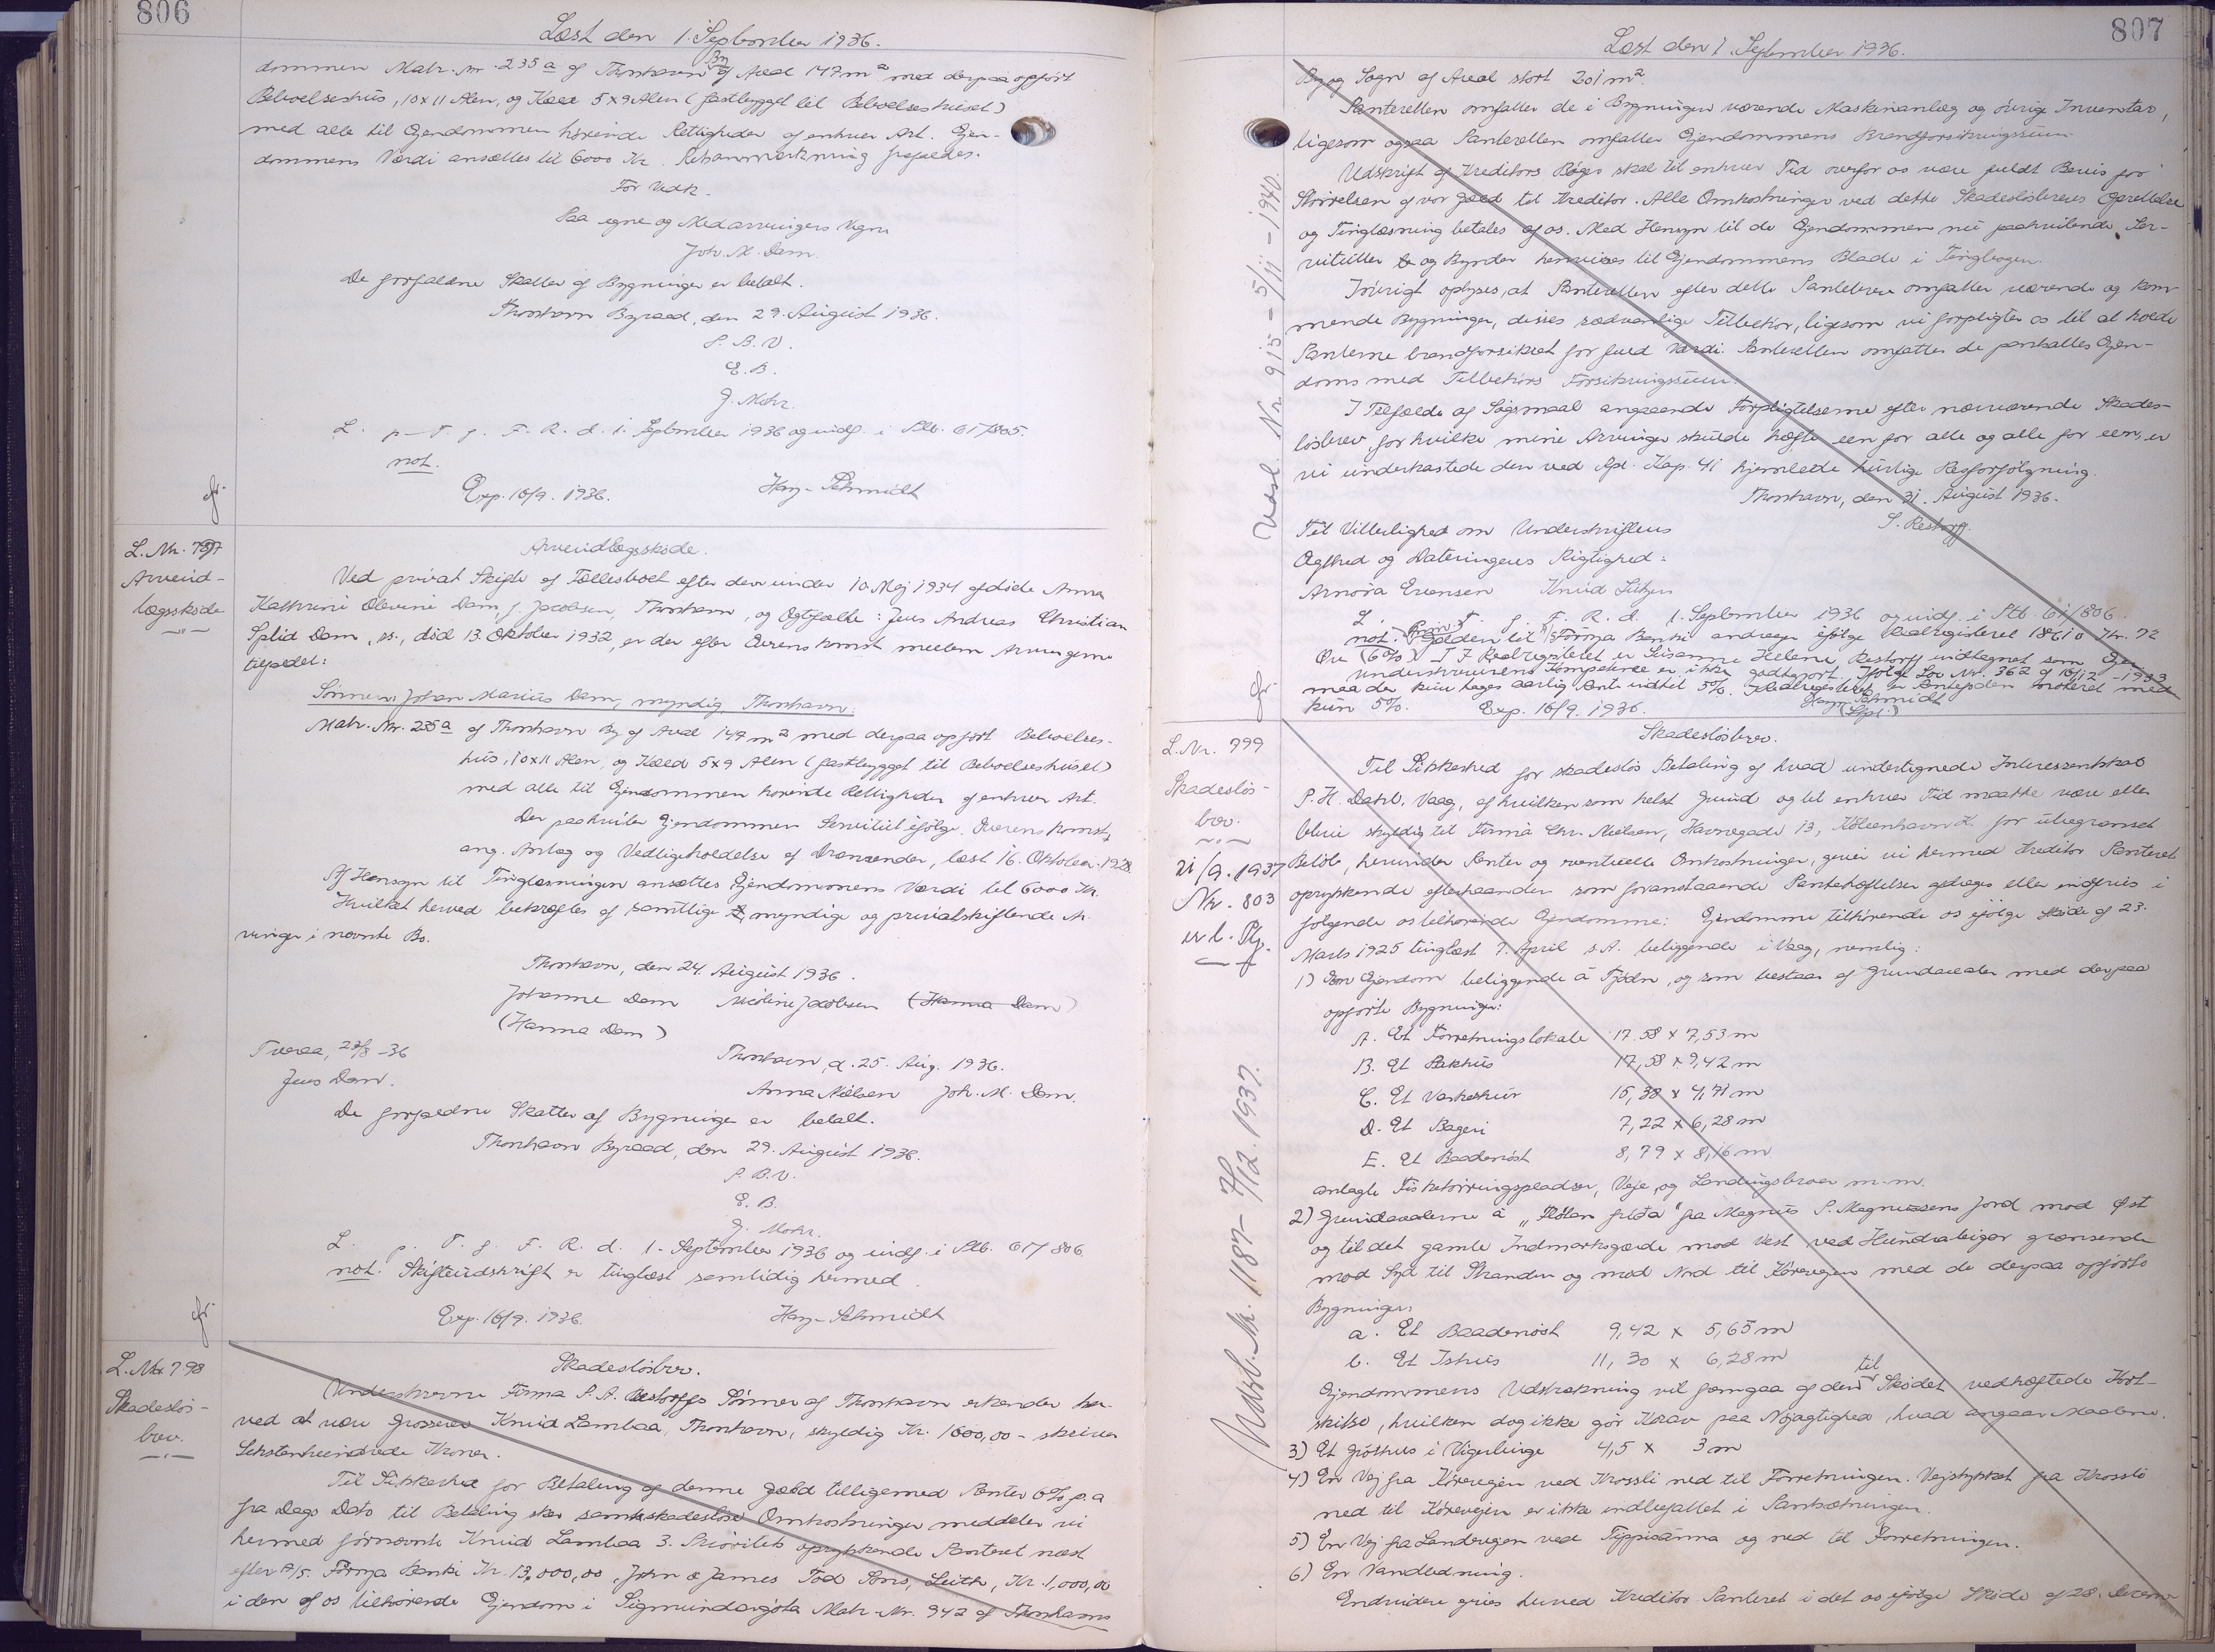 806
Læst den 1. September 1936.
dommen Matr. Nr. 235 a af Thorshavn By af Areal 147 m² med derpaa opført
Beboelseshus, 10 x 11 Alen, og Kæld 5 x 9 Alen (fastbygget til Beboelseshuset)
med alle til Ejendommen hørende Rettigheder af enhver Art. Ejen-
dommens Værdi ansættes til 6000 Kr. Retsanmærkning frafaldes.
For Vedk.
Paa egne og Medarvingers Vegne
Joh. M. Dam.
De forfaldne Skatter af Bygninger er betalt.
Thorshavn Byraad, den 29. August 1936.
P. B. V.
E. B.
J. Mohr.
L. p. T. f. F. R. d. 1. September 1936 og indf. i Ptb. 61/805.
not.
Exp. 16/9. 1936. Hay-Schmidt
L. Nr. 797
Arveud-
lægsskøde
Arveudlægsskøde.
Ved privat Skifte af Fællesboet efter den under 10. Maj 1934 afdøde Anna
Kathrine Elevine Dam, f. Jacobsen, Thorshavn, og Ægtefælle: Jens Andreas Christian
Splid Dam, ss., død 13. Oktober 1932, er der efter Overenskomst mellem Arvingerne
tilfaldet:
Sønnen Johan Marius Dam, myndig, Thorshavn:
Matr. Nr. 235 a af Thorshavn By af Areal 147 m² med derpaa opført Beboelses-
hus, 10 x 11 Alen, og Kæld 5 x 9 Alen (fastbygget til Beboelseshuset)
med alle til Ejendommen hørende Rettigheder af enhver Art.
Der paahviler Ejendommen Servitut ifølge Overenskomst
ang. Anlæg og Vedligeholdelse af Drænrender, læst 16. Oktober 1928.
Af Hensyn til Tinglæsningen ansættes Ejendommens Værdi til 6000 Kr.
Hvilket herved bekræftes af samtlige myndige og privatskiftende Ar-
vinger i nævnte Bo.
Thorshavn, den 24. August 1936.
Johanne Dam Nicoline Jacobsen (Hanna Dam)
(Hanna Dam)
Tveraa, 27/8 -36
Jens Dam.
Thorshavn, d. 25. Aug. 1936.
Anna Nielsen Joh. M. Dam.
De forfaldne Skatter af Bygninger er betalt.
Thorshavn Byraad, den 29. August 1936.
P. B. V.
E. B.
J. Mohr.
L. p. T. f. F. R. d. 1. September 1936 og indf. i Ptb. 61/806.
not. Skifteudskrift er tinglæst samtidig hermed.
Exp. 16/9. 1936. Hay-Schmidt
L. Nr. 798
Skadesløs-
brev.
Skadesløsbrev.
Underskrevne Firma P. A. Restorffs Sønner af Thorshavn erkender her-
ved at være Grosserer Knud Lamhaa, Thorshavn, skyldig Kr. 1600,00 - skriver
Sekstenhundrede Kroner.
Til Sikkerhed for Betaling af denne Gæld tilligemed Renter 6% p.a
fra Dags Dato til Betaling sker samt skadesløse Omkostninger meddeler vi
hermed førnævnte Knud Lamhaa 3. Prioritets oprykkende Panteret næst
efter A/S. Føroya Banki Kr. 13.000,00, John & James Tod Sons, Leith, Kr. 1,000,00
i den af os tilhørende Ejendom i Sigmundargøta Matr. Nr. 942 af Thorshavns
807
Læst den 1. September 1936.
By og Sogn af Areal stort 201 m².
Panteretten omfatter de i Bygningen værende Maskinanlæg og øvrige Inventar,
ligesom ogsaa Panteretten omfatter Ejendommens Brandforsikringssum
Udskrift af Kreditors Bøger skal til enhver Tid overfor os være fuldt Bevis for
Størrelsen af vor Gæld til Kreditor. Alle Omkostninger ved dette Skadesløsbrevs Oprettelse
og Tinglæsning betales af os. Med Hensyn til de Ejendommen nu paahvilende Ser-
vitutter og Byrder henvises til Ejendommens Blade i Tingbogen.
Iøvrigt oplyses, at Panteretten efter dette Pantebrev omfatter værende og kom-
mende Bygninger, disses sædvanlige Tilbehør, ligesom vi forpligter os til at holde
Panterne brandforsikret for fuld Værdi. Panteretten omfatter de pantsattes Ejen-
doms med Tilbehørs Forsikringssum.
I Tilfælde af Søgsmaal angaaende Forpligtelserne efter nærværende Skades-
løsbrev for hvilke mine Arvinger skulde hæfte een for alle og alle for een, er
vi underkastede den ved Rpl. Kap. 41 hjemlede hurtige Retsforfølgning.
Thorshavn, den 31. August 1936.
P. Restorff.
Til Vitterlighed om Underskriftens
Ægthed og Dateringens Rigtighed:
Arnóra Evensen Knud Lützen
L. p. T. f. F. R. d. 1. September 1936 og indf. i Ptb. 61/806.
not. Gælden til "Føroya Banki" andrager ifølge Realregisteret 18610 Kr. 72
Øre (6%). I F. Realregisteret er Susanne Helene Restorff indtegnet som Ejer
underskriverens Kompetence er ikke godtgjort. Ifølge Lov Nr. 362 af 18/12 - 1933
maa der kun tages aarlig Rente indtil 5%. I Realregisteret er Rentefoden noteret med
kun 5%. Exp. 16/9. 1936. Hay-Schmidt
(Stpl.)
Udsl. Nr. 915 - 5/11 - 1940.
L. Nr. 799
Skadesløs-
brev.
21/9. 1937
Nr. 803
Udsl. Nr. 1187 - 7/12. 1937.
Skadesløsbrev.
Til Sikkerhed for skadesløs Betaling af hvad undertegnede Interessentskab
P. H. Dahl, Vaag, af hvilken som helst Grund og til enhver Tid maatte være eller
blive skyldig til Firma Chr. Nielsen, Havnegade 13, København K. for ubegrænset
Beløb, herunder Renter og eventuelle Omkostninger, giver vi hermed Kreditor Panteret
oprykkende efterhaanden som foranstaaende Pantehæftelser afdrages eller indfries i
følgende os tilhørende Ejendomme: Ejendomme tilhørende os ifølge Skøde af 23.
Marts 1925 tinglæst 7. April s.A. beliggende i Vaag, nemlig:
1) Een Ejendom beliggende á Fjødn, og som bestaar af Grundarealer med derpaa
opførte Bygninger:
A. Et Forretningslokale 17.58 x 7,53 m
B. Et Pakhus 17,58 x 9,42 m
C. Et Vaskeskur 15,38 x 4,71 m
D. Et Bageri 7,22 x 6,28 m
E. Et Baadenøst 8,79 x 8,16 m
anlagte Fisketørringspladser, Veje, og Landingsbroer m.m.
2) Grundarealerne á "Fløtan fríða" fra Magnus P. Magnussens Jord mod Øst
og til det gamle Indmarksgærde mod Vest ved Hundabeigar grænsende
mod Syd til Stranden og mod Nord til Kørevejen med de derpaa opførte
Bygninger:
a. Et Baadenøst 9,42 x 5,65 m
b. Et Ishus 11,30 x 6,28 m
Ejendommens Udstrækning vil fremgaa af den til Skødet vedhæftede Kort-
skitse, hvilken dog ikke gør Krav paa Nøjagtighed, hvad angaar Maalene.
3) Et Gróthus i Vigerlinge 4,5 x 3 m
4) En Vej fra Kørevejen ved Krossli ned til Forretningen. Vejstykket fra Krossli
ned til Kørevejen er ikke indbefattet i Pantsætningen.
5) En Vej fra Landevejen ved Tippisánna og ned til Forretningen.
6) En Vandledning.
Endvidere gives herved Kreditor Panteret i det os ifølge Skøde af 28. Decem-